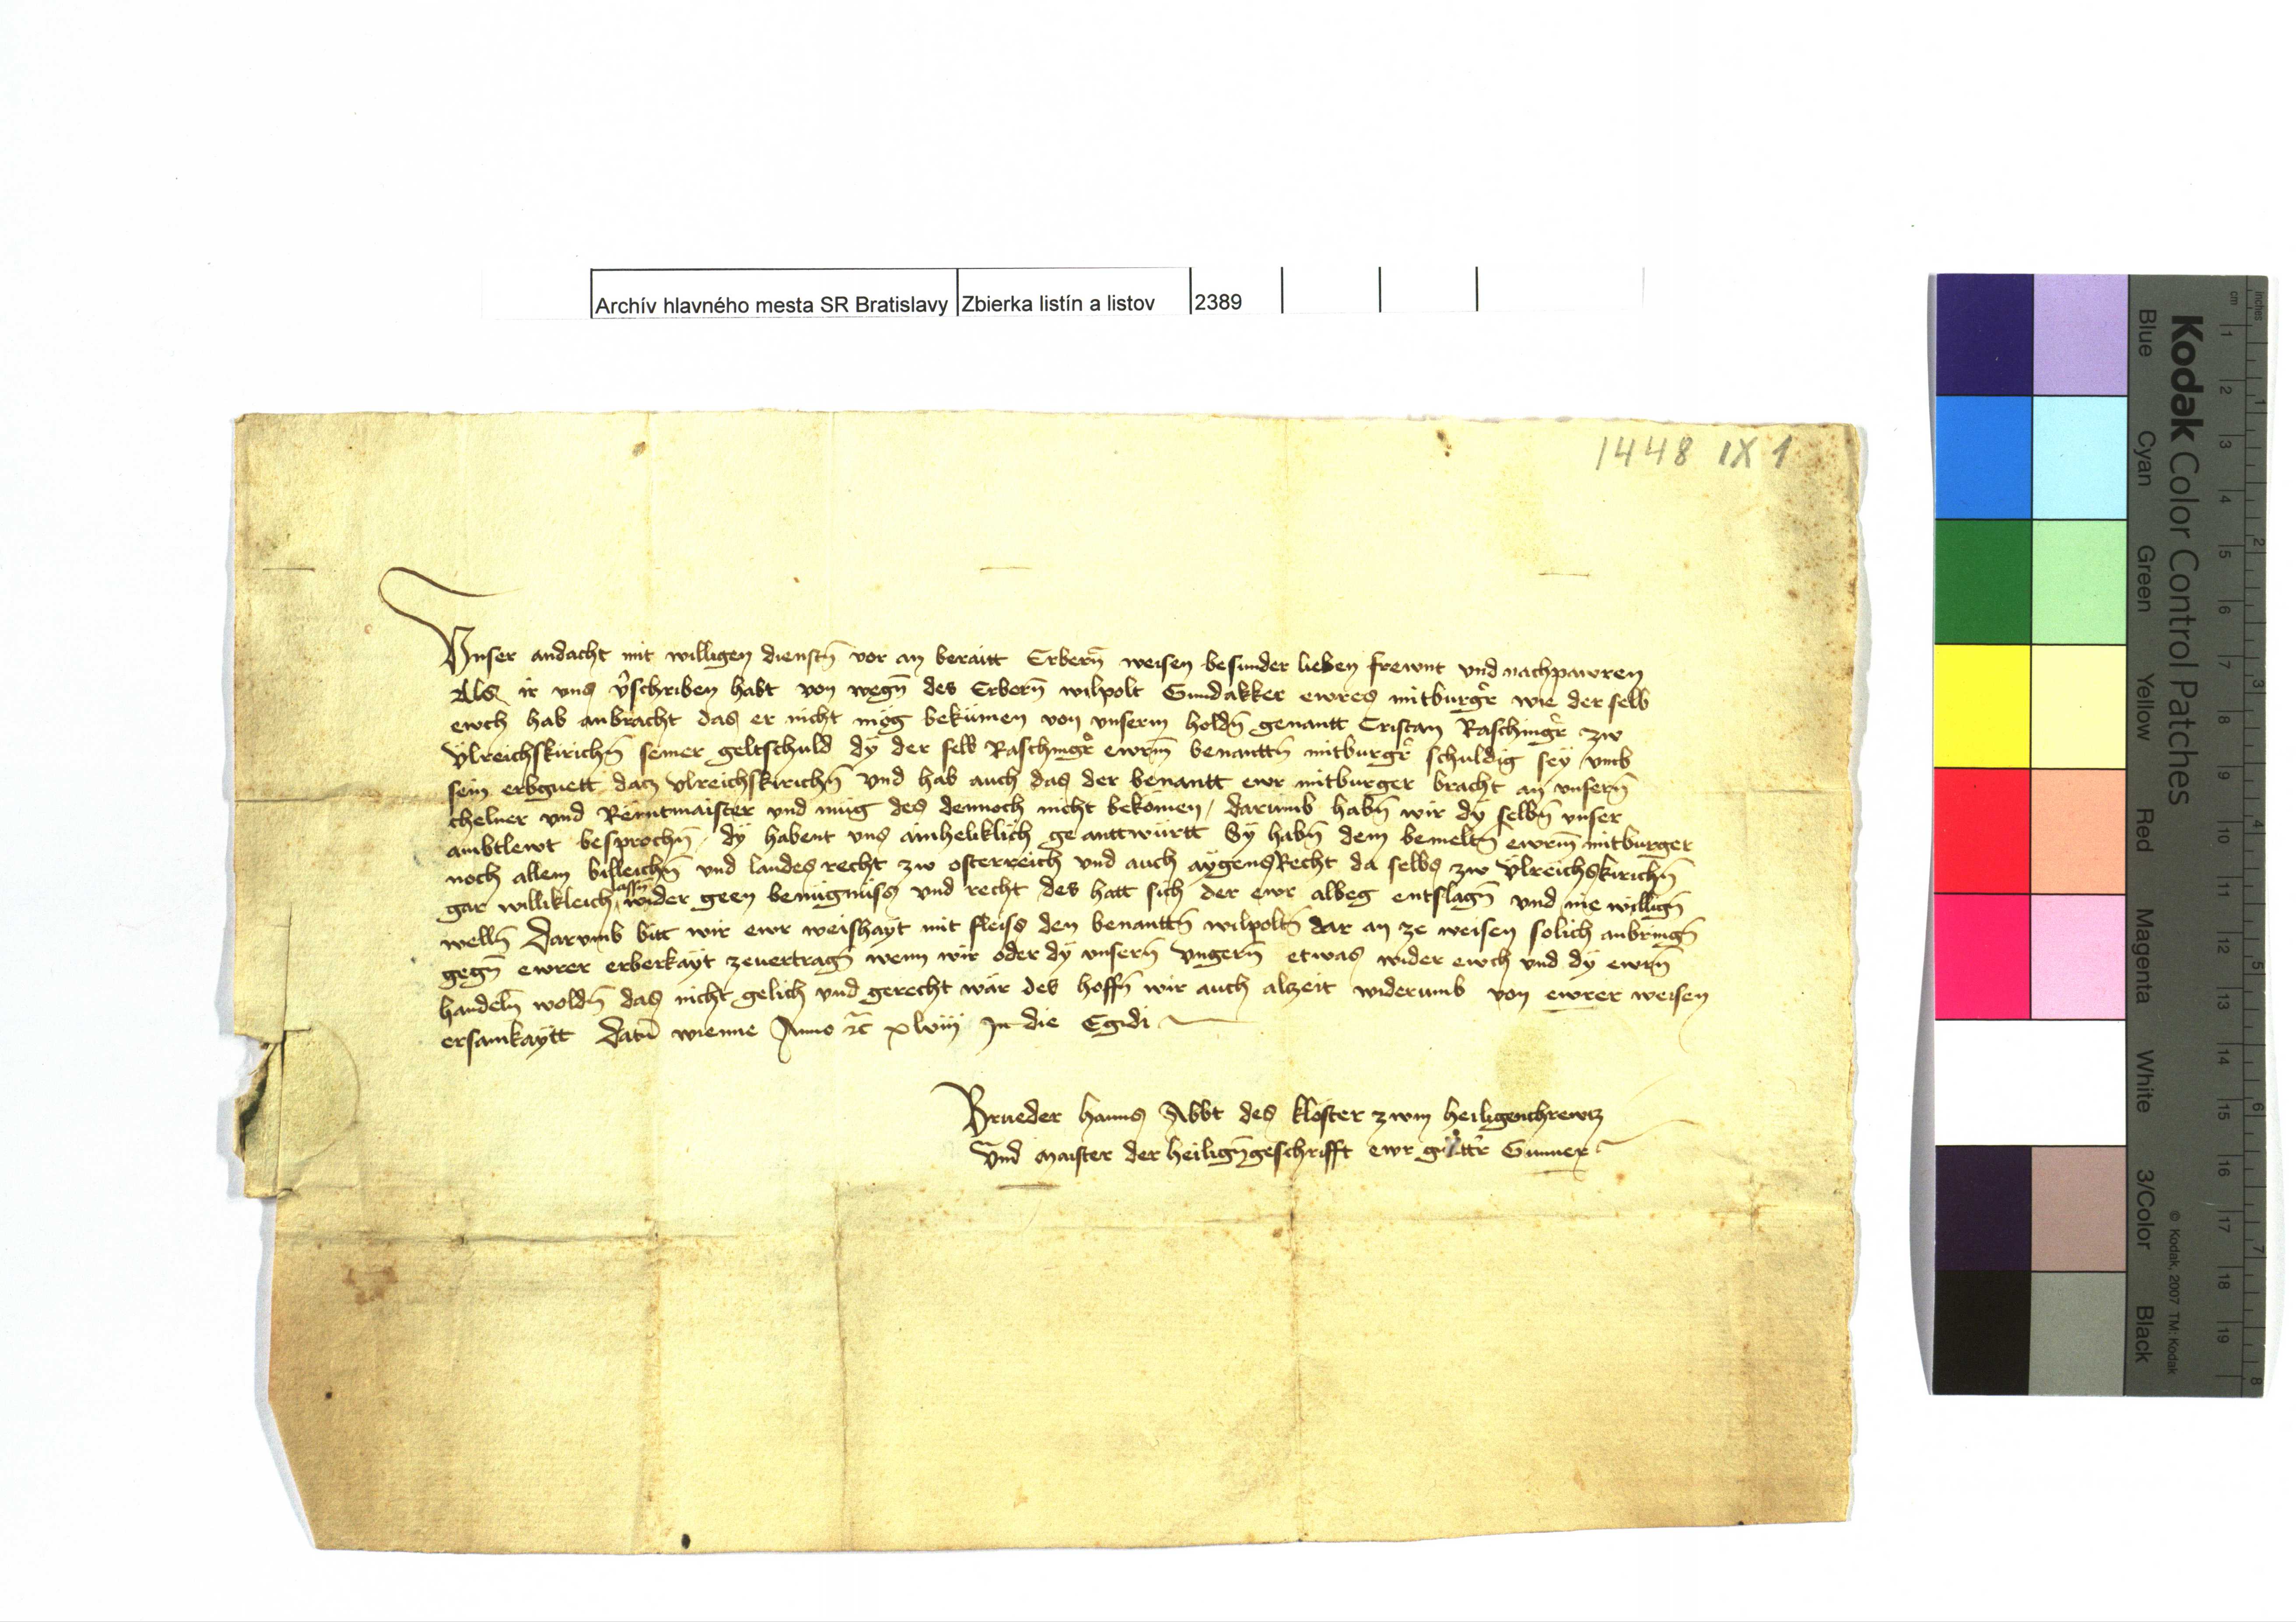 Archív hlavného mesta SR Bratislavy Zbierka listín a listov 2389
1448 IX 1
Vnser andacht mit willigen dienstn̄ vor an beraitt Erbern̄ weisen besunder lieben frewnt vnd nachpawren
Als ir vns v̾schriben habt von wegn̄ des Erbern̄ wilpolt Gundakker ewres mitburgr̾ wie der selb
ewch hab anbracht das er nicht mög bekümen von vnserm holdn̄ genantt Cristan Raschingr̾ zw
Vlreichskirichn̄ seiner geltschuld dÿ der selb Raschingr̾ ewrm̄ benanttn̄ mitburgr̾ schuldig seÿ vmb
sein erbguett datz vlreichskirichn̄ vnd hab auch das der benantt ewr mitburger bracht an vnsern̄
chelner vnd Renntmaister vnd müg des dennoch nicht bekomen / darumb habn̄ wir dÿ selbn̄ vnser
ambtlewt besprochn̄ / dÿ habent vns ainheliklich ge anttwürtt Sÿ habn̄ dem bemeltn̄ ewrm̄ mitburger
noch allem vnd landes recht zw osterreich vnd auch aÿgens Recht da selbs zw Vlreichskirichn̄
gar willikleich wider geen benügnüss vnd recht des hatt sich der ewr albeg entslagn̄ vnd nie willign̄
welln̄ Darvmb bitt wir ewr weishaÿt mit fleiss den benanttn̄ wilpoltn̄ dar an ze weisen solich anbringn̄
gegn̄ ewrer erberkaÿt zeuertragn̄ wenn wir oder dÿ vnsern̄ vngern̄ etwas wider ewch vnd dÿ ewrn̄
handeln̄ woldn̄ das nicht gelich vnd gerecht wär des hoffn̄ wir auch alzeit widerumb von ewrer weisen
ersamkaÿtt Datū wienne Anno ꝛc̄ xlviij In die Egidi
Brueder hanns Abbt des kloster zwm heiligenchrewtz
vnd maister der heilign̄geschrifft ewr guttr̾ Gunner
Kodak Color Control Patches
Blue Cyan Green Yellow Red Magenta White 3/Color Black
© Kodak, 2007 TM: Kodak
cm 1 2 3 4 5 6 7 8 9 10 11 12 13 14 15 16 17 18 19
inches 1 2 3 4 5 6 7 8